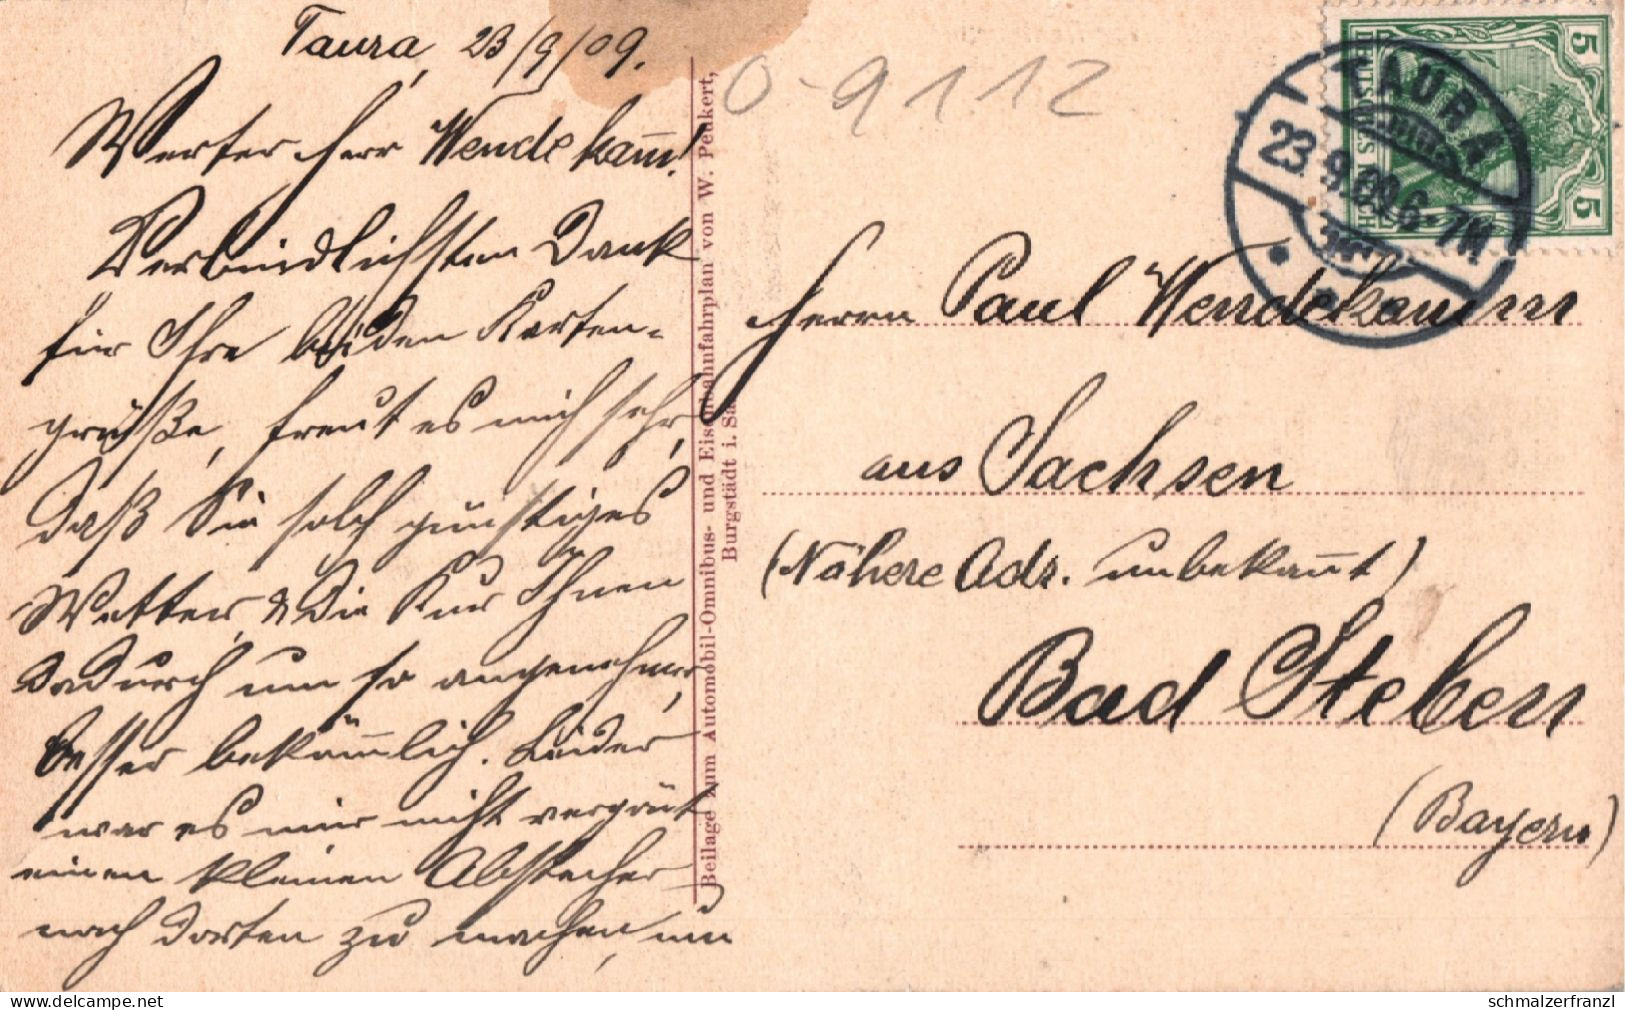 Taura, 23/9/09.
Werter Herr Wendekam̅!
Verbindlichsten Dank
für Ihre beiden Karten-
grüße, freut es mich sehr,
daß Sie solch günstiges
Wetter, & die Kur Ihnen
dadurch um so angenehmer,
besser bekäm̅lich. Leider
war es mir nicht vergönt
einen kleinen Abstecher
nach dorten zu machen, um
Beilage zum Automobil-Omnibus- und Eisenbahnfahrplan von W. Peukert,
Burgstädt i. Sa.
0-9112
DEUTSCHES REICH
5
5
TAURA
23.9.09.6-7N.
Herrn Paul Wendekamm
aus Sachsen
(Nähere Adr. unbekan̅t)
Bad Steben
(Bayern)
schmalzerfranzl